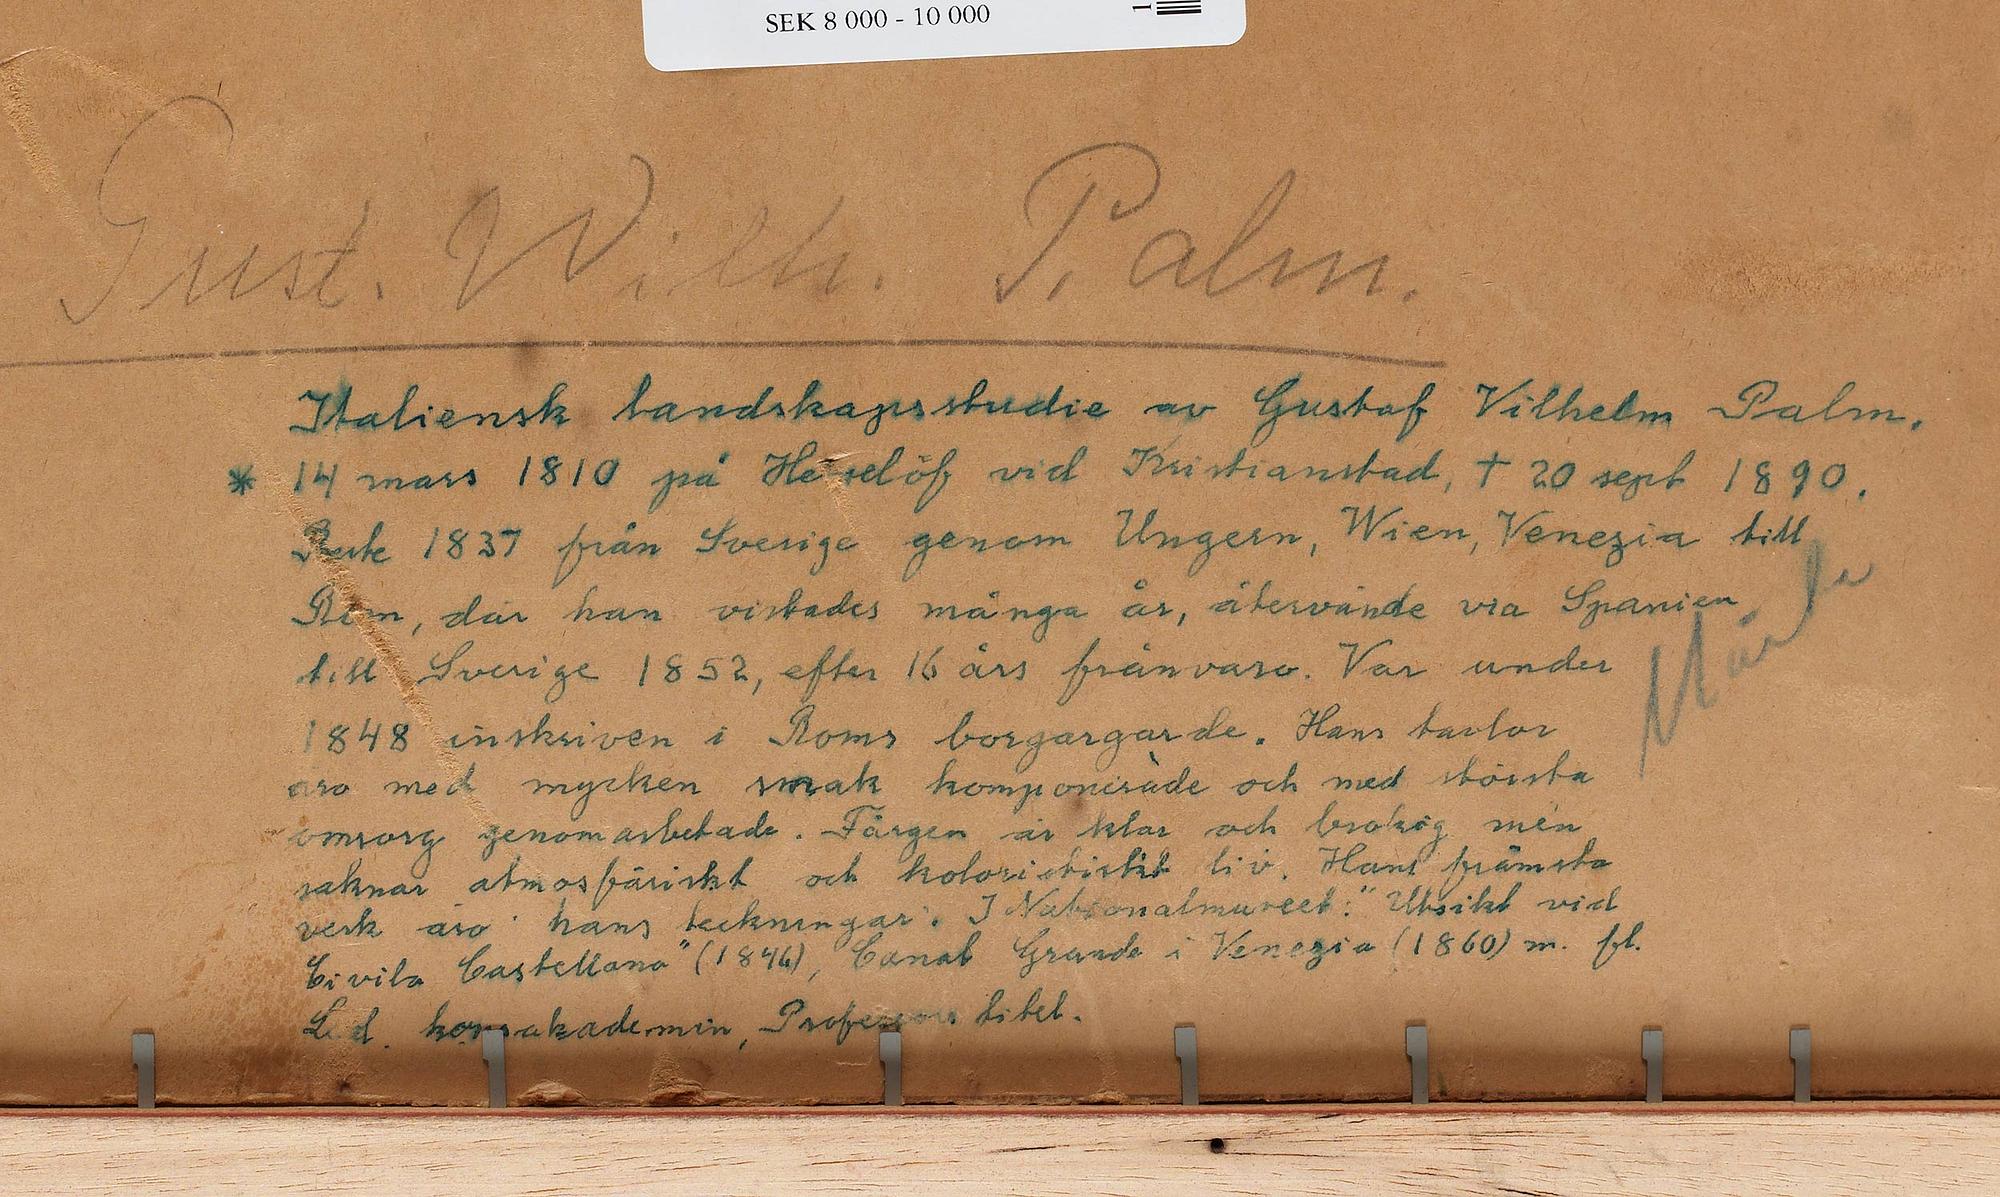 SEK 8 000 - 10 000
Gust. Wilh. Palm.
Italiensk landskapsstudie av Gustaf Vilhelm Palm.
* 14 mars 1810 på vid Kristianstad, † 20 sept 1890.
Reste 1837 från Sverige genom Ungern, Wien, Venezia till
Rom, där han vistades många år, återvände via Spanien
till Sverige 1852, efter 16 års frånvaro. Var under
1848 inskriven i Roms borgargarde. Hans tavlor
äro med mycken smak komponerade och med största
omsorg genomarbetade. Färgen är klar och brokig men
saknar atmosfäriskt och koloristiskt liv. Hans främsta
verk äro hans teckningar. I Nationalmuseet: "Utsikt vid
Civita Castellana" (1846), Canal Grande i Venezia (1860) m. fl.
Led. konsakademin, Professors titel.